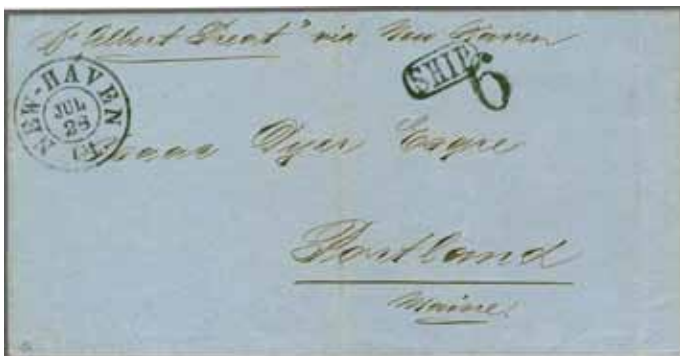 pr "Albert Treat" via New Haven
SHIP
6
NEW-HAVEN CT.
JUL
28
Isaac Dyer Esqre
Portland
Maine